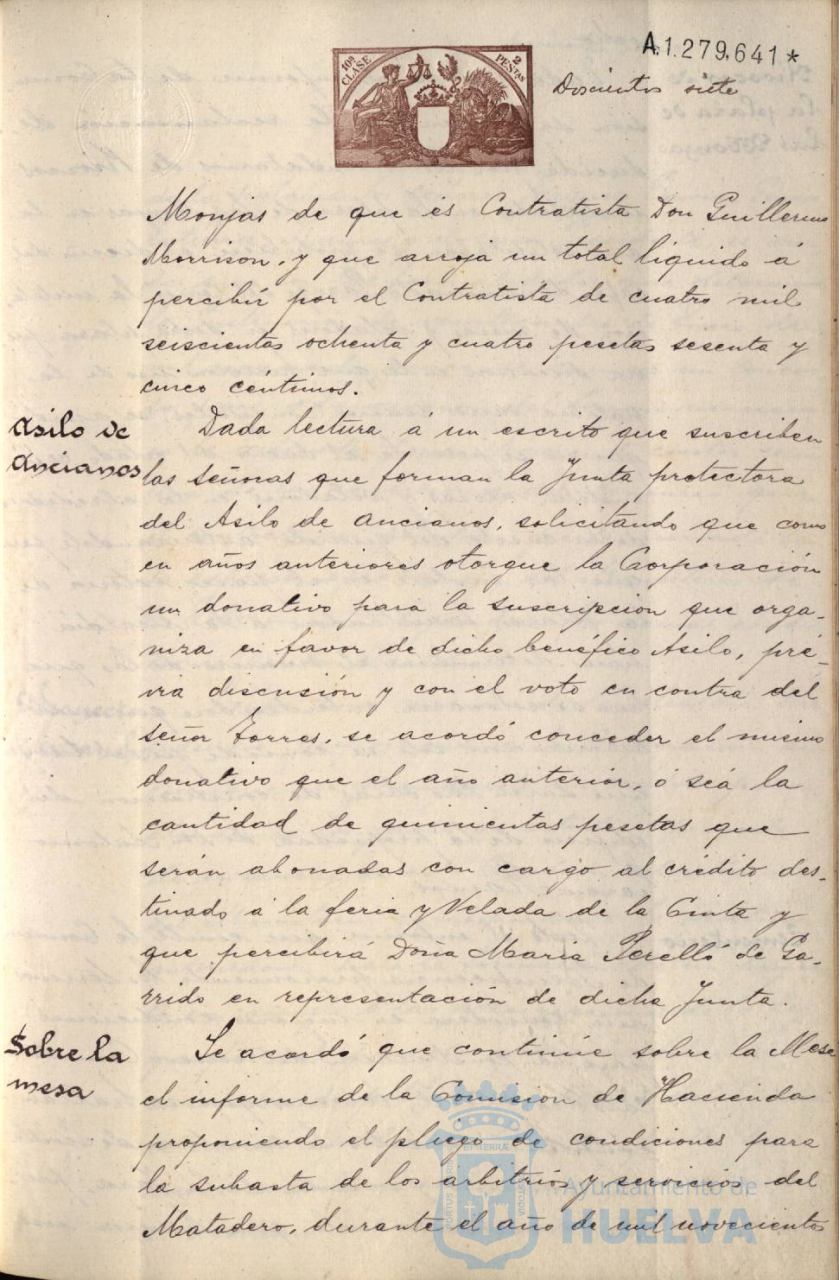 10ª CLASE
2 PESETAS
A.1.279,641*
Doscientos siete
Monjas de que és Contratista Don Guillermo
Morrison, y que arroja un total líquido á
percibir por el Contratista de cuatro mil
seiscientas ochenta y cuatro pesetas sesenta y
cinco céntimos.
Asilo de
Ancianos
Dada lectura á un escrito que suscriben
las Señoras que forman la Junta protectora
del Asilo de Ancianos, solicitando que como
en años anteriores otorgue la Corporación
un donativo para la suscripcion que orga-
niza en favor de dicho benéfico Asilo, pré-
via discusión y con el voto en contra del
Señor Torres, se acordó conceder el mismo
donativo que el año anterior, ó seá la
cantidad de quinientas pesetas que
serán abonadas con cargo al crédito des-
tinado á la feria y Velada de la Cinta y
que percibirá Doña Maria Perelló de Ga-
rrido en representación de dicha Junta.
Sobre la
mesa
Se acordó que continúe sobre la Mesa
el informe de la Comision de Hacienda
proponiendo el pliego de condiciones para
la subasta de los arbitrios y servicios del
Matadero, durante el año de mil novecientos
Ayuntamiento de
HUELVA